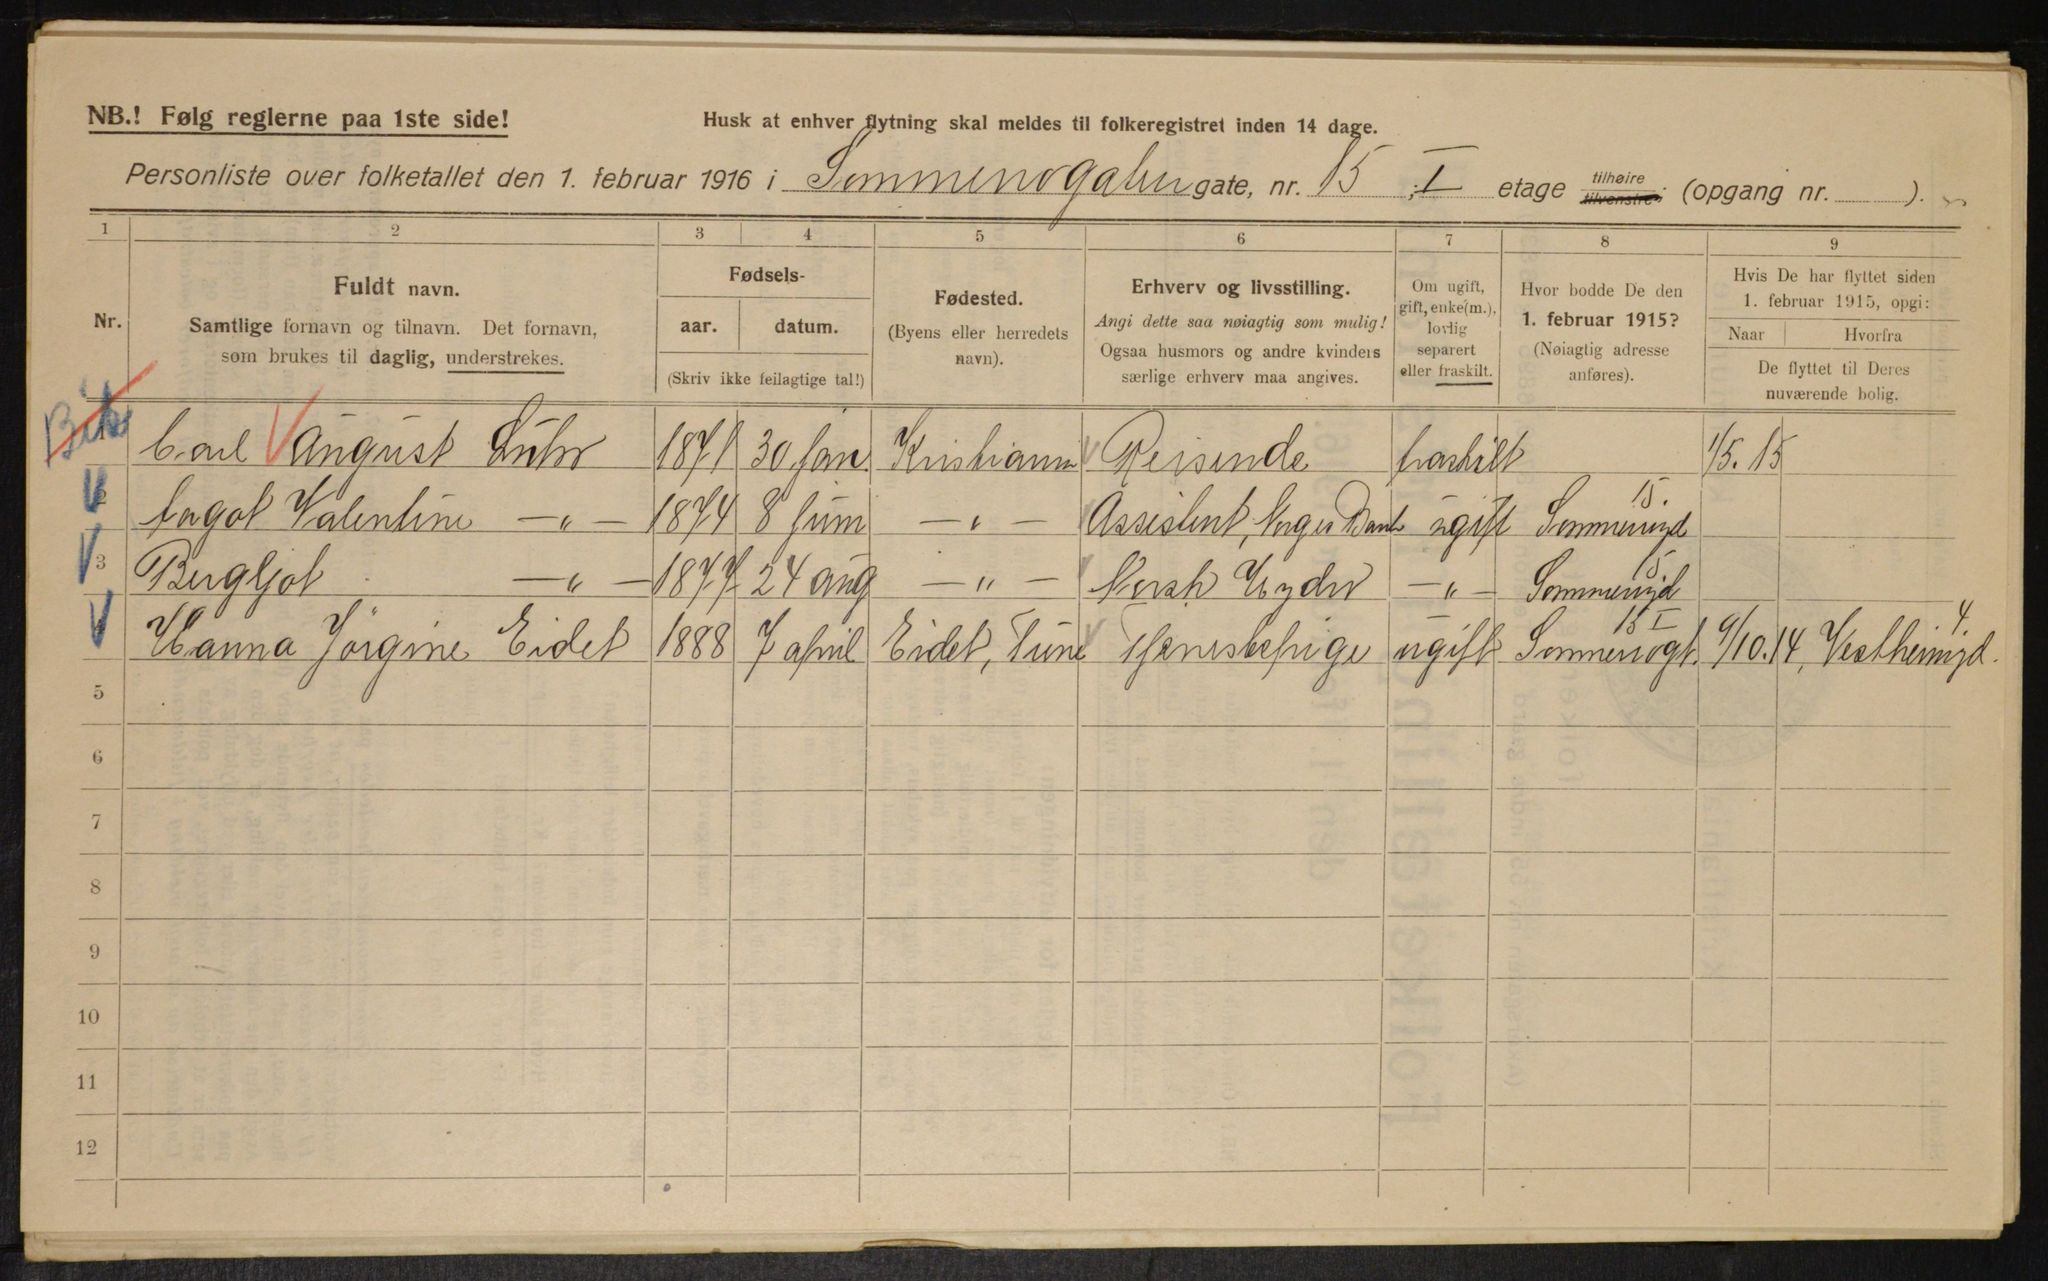 NB.! Følg reglerne paa 1ste side!
Husk at enhver flytning skal meldes til folkeregistret inden 14 dage.
Personliste over folketallet den 1. februar 1916 i Sommerrogaten gate, nr. 15, I etage tilhøire tilvenstre (opgang nr. ).
1 2 3 4 5 6 7 8 9
Nr.
Fuldt navn.
Samtlige fornavn og tilnavn. Det fornavn,
som brukes til daglig, understrekes.
Fødsels-
aar. datum.
(Skriv ikke feilagtige tal!)
Fødested.
(Byens eller herredets
navn).
Erhverv og livsstilling.
Angi dette saa nøiagtig som mulig!
Ogsaa husmors og andre kvinders
særlige erhverv maa angives.
Om ugift,
gift, enke(m.),
lovlig
separert
eller fraskilt.
Hvor bodde De den
1. februar 1915?
(Nøiagtig adresse
anføres).
Hvis De har flyttet siden
1. februar 1915, opgi:
Naar Hvorfra
De flyttet til Deres
nuværende bolig.
Bik
1 Carl August Lühr 1871 30 jan. Kristiania Reisende fraskilt 1/5. 15
2 Aagot Valentine —„— 1874 8 juni —„— Assistent, Norges Bank ugift Sommerrogt 15.
3 Bergljot —„— 1877 24 aug —„— Norsk Hydro —„— Sommerrogt 15
4 Hanna Jörgine Eidet 1888 7 april Eidet, Tune Tjenestepige ugift Sommerrogt. 15 I 9/10.14, Vestheimgd. 4.
5
6
7
8
9
10
11
12